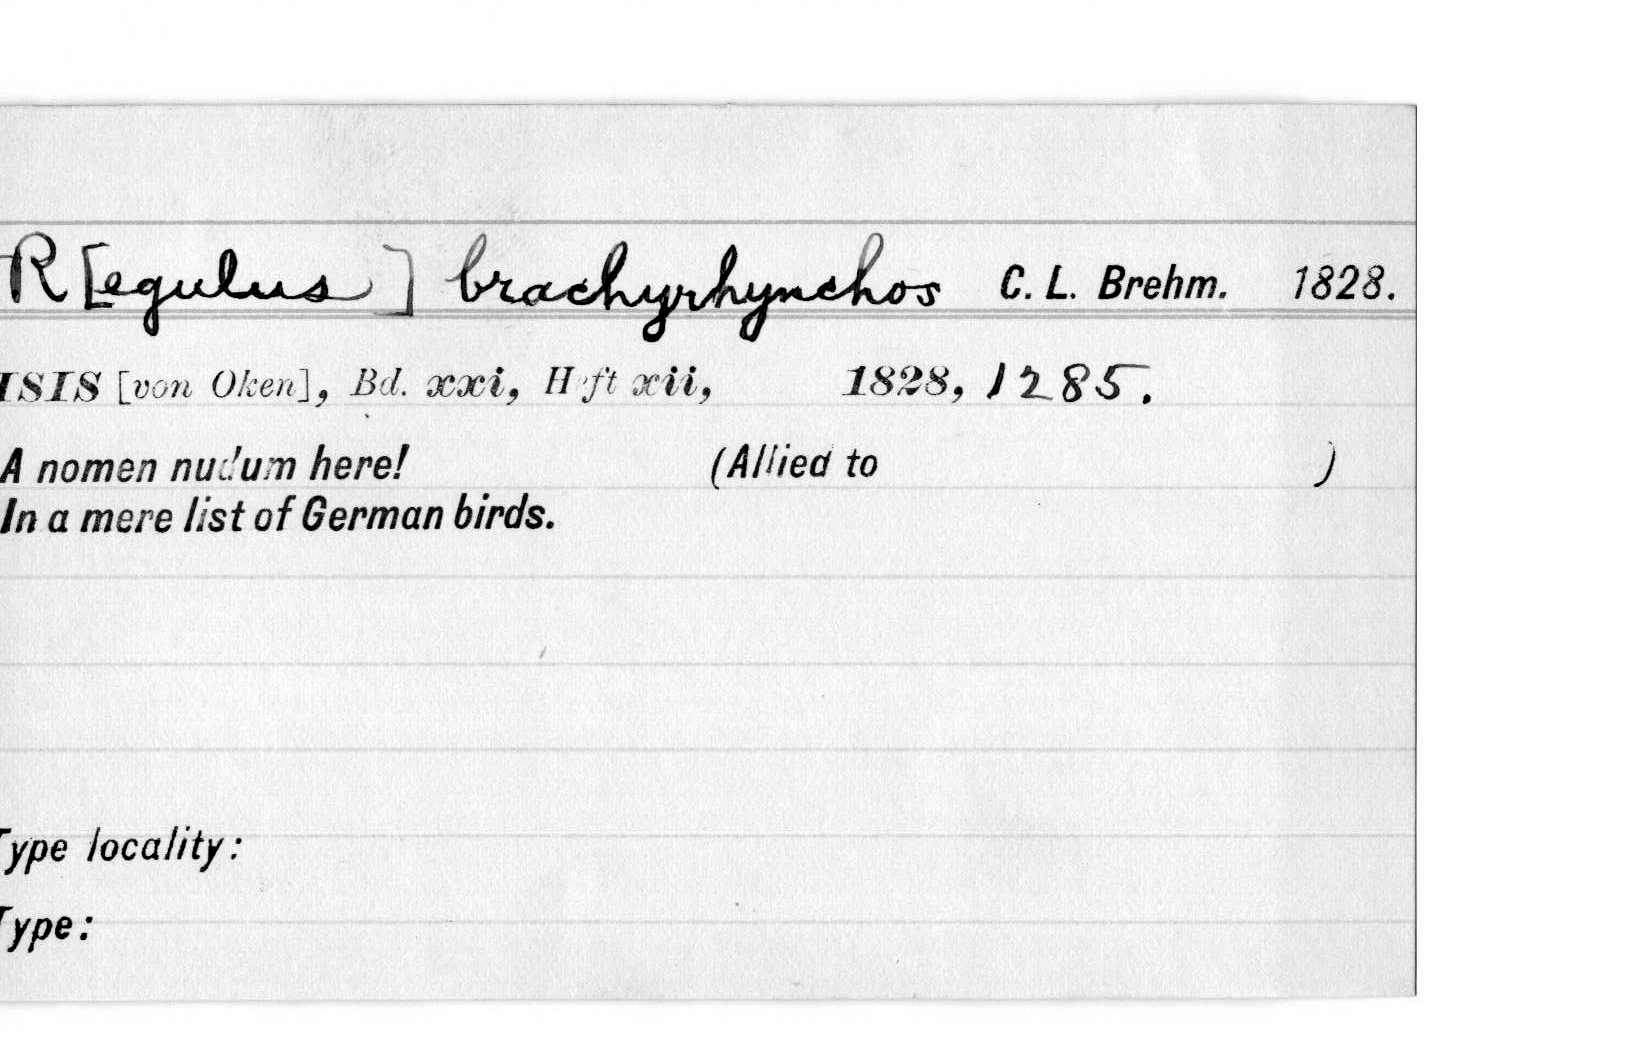 R[egulus] brachyrhynchos C. L. Brehm. 1828.
ISIS [von Oken], Bd. xxi, Heft xii, 1828, 1285.
A nomen nudum here! (Allied to )
In a mere list of German birds.
Type locality:
Type: